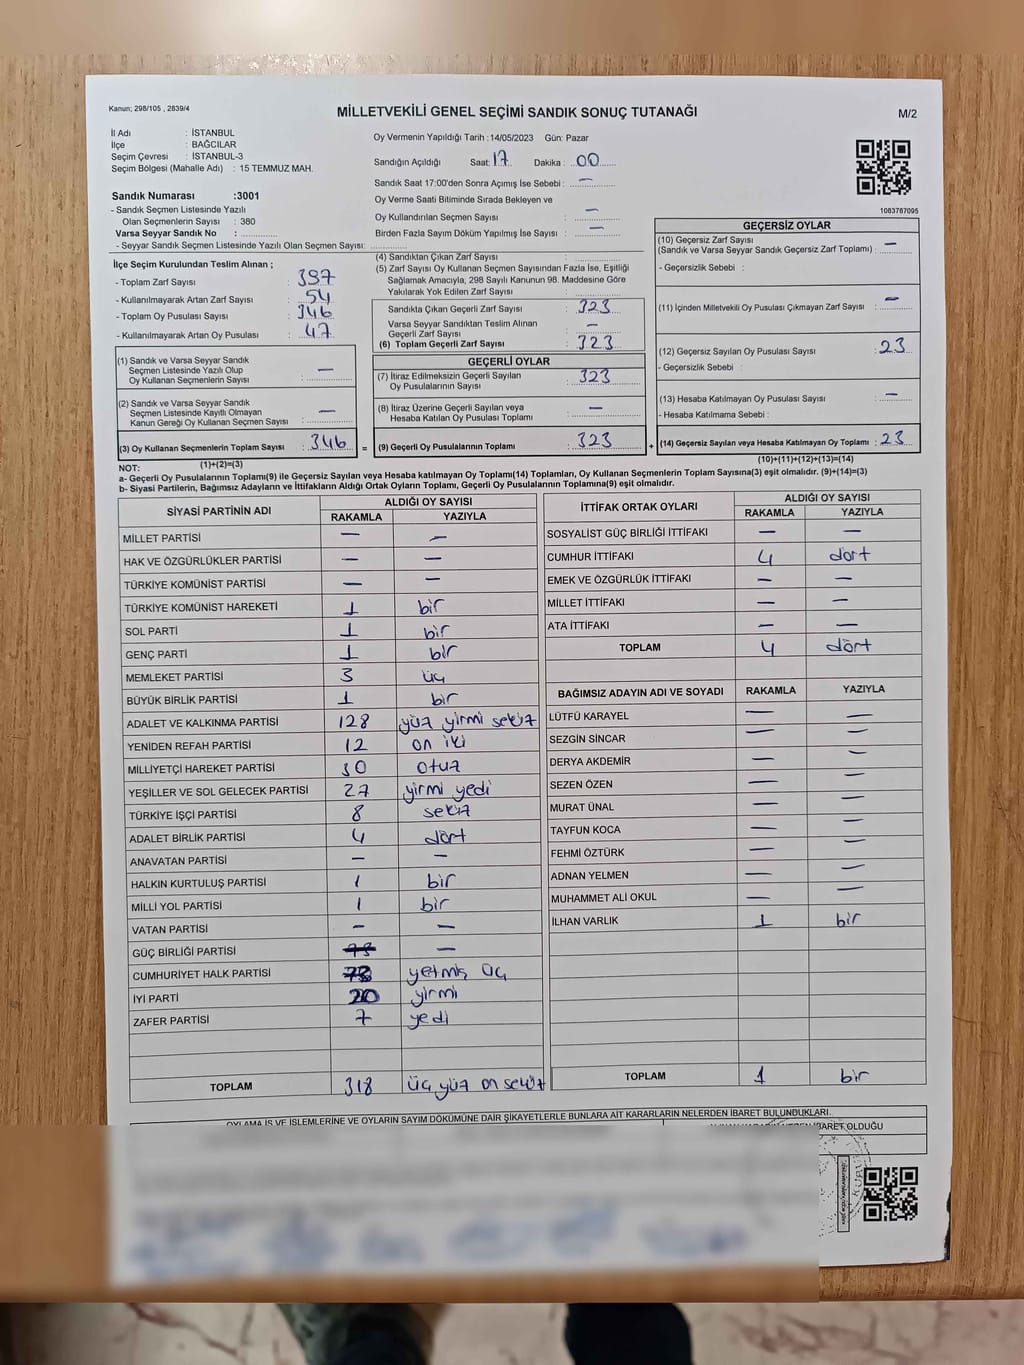 Kanun; 298/105 , 2839/4
MİLLETVEKİLİ GENEL SEÇİMİ SANDIK SONUÇ TUTANAĞI
M/2
İl Adı : İSTANBUL
İlçe : BAĞCILAR
Seçim Çevresi : İSTANBUL-3
Seçim Bölgesi (Mahalle Adı) : 15 TEMMUZ MAH.
Sandık Numarası :3001
- Sandık Seçmen Listesinde Yazılı
Olan Seçmenlerin Sayısı : 380
Varsa Seyyar Sandık No :
- Seyyar Sandık Seçmen Listesinde Yazılı Olan Seçmen Sayısı:
Oy Vermenin Yapıldığı Tarih :14/05/2023 Gün: Pazar
Sandığın Açıldığı Saat: 17 Dakika : 00
Sandık Saat 17:00'den Sonra Açımış İse Sebebi : —
Oy Verme Saati Bitiminde Sırada Bekleyen ve
Oy Kullandırılan Seçmen Sayısı : —
Birden Fazla Sayım Döküm Yapılmış İse Sayısı : —
1083767095
İlçe Seçim Kurulundan Teslim Alınan ;
- Toplam Zarf Sayısı : 397
- Kullanılmayarak Artan Zarf Sayısı : 54
- Toplam Oy Pusulası Sayısı : 346
- Kullanılmayarak Artan Oy Pusulası : 47
(1) Sandık ve Varsa Seyyar Sandık
Seçmen Listesinde Yazılı Olup
Oy Kullanan Seçmenlerin Sayısı : —
(2) Sandık ve Varsa Seyyar Sandık
Seçmen Listesinde Kayıtlı Olmayan
Kanun Gereği Oy Kullanan Seçmen Sayısı : —
(3) Oy Kullanan Seçmenlerin Toplam Sayısı : 346 =
(1)+(2)=(3)
(4) Sandıktan Çıkan Zarf Sayısı :
(5) Zarf Sayısı Oy Kullanan Seçmen Sayısından Fazla İse, Eşitliği
Sağlamak Amacıyla, 298 Sayılı Kanunun 98. Maddesine Göre
Yakılarak Yok Edilen Zarf Sayısı :
Sandıkta Çıkan Geçerli Zarf Sayısı : 323
Varsa Seyyar Sandıktan Teslim Alınan
Geçerli Zarf Sayısı : —
(6) Toplam Geçerli Zarf Sayısı : 323
GEÇERLİ OYLAR
(7) İtiraz Edilmeksizin Geçerli Sayılan
Oy Pusulalarının Sayısı : 323
(8) İtiraz Üzerine Geçerli Sayılan veya
Hesaba Katılan Oy Pusulası Toplamı : —
(9) Geçerli Oy Pusulalarının Toplamı : 323 +
GEÇERSİZ OYLAR
(10) Geçersiz Zarf Sayısı
(Sandık ve Varsa Seyyar Sandık Geçersiz Zarf Toplamı) : —
- Geçersizlik Sebebi :
(11) İçinden Milletvekili Oy Pusulası Çıkmayan Zarf Sayısı : —
(12) Geçersiz Sayılan Oy Pusulası Sayısı : 23
- Geçersizlik Sebebi :
(13) Hesaba Katılmayan Oy Pusulası Sayısı : —
- Hesaba Katılmama Sebebi :
(14) Geçersiz Sayılan veya Hesaba Katılmayan Oy Toplamı : 23
(10)+(11)+(12)+(13)=(14)
NOT:
a- Geçerli Oy Pusulalarının Toplamı(9) ile Geçersiz Sayılan veya Hesaba katılmayan Oy Toplamı(14) Toplamları, Oy Kullanan Seçmenlerin Toplam Sayısına(3) eşit olmalıdır. (9)+(14)=(3)
b- Siyasi Partilerin, Bağımsız Adayların ve İttifakların Aldığı Ortak Oyların Toplamı, Geçerli Oy Pusulalarının Toplamına(9) eşit olmalıdır.
SİYASİ PARTİNİN ADI ALDIĞI OY SAYISI
RAKAMLA YAZIYLA
MİLLET PARTİSİ — —
HAK VE ÖZGÜRLÜKLER PARTİSİ — —
TÜRKİYE KOMÜNİST PARTİSİ — —
TÜRKİYE KOMÜNİST HAREKETİ 1 bir
SOL PARTİ 1 bir
GENÇ PARTİ 1 bir
MEMLEKET PARTİSİ 3 üç
BÜYÜK BİRLİK PARTİSİ 1 bir
ADALET VE KALKINMA PARTİSİ 128 yüz yirmi sekiz
YENİDEN REFAH PARTİSİ 12 on iki
MİLLİYETÇİ HAREKET PARTİSİ 30 otuz
YEŞİLLER VE SOL GELECEK PARTİSİ 27 yirmi yedi
TÜRKİYE İŞÇİ PARTİSİ 8 sekiz
ADALET BİRLİK PARTİSİ 4 dört
ANAVATAN PARTİSİ — —
HALKIN KURTULUŞ PARTİSİ 1 bir
MİLLİ YOL PARTİSİ 1 bir
VATAN PARTİSİ — —
GÜÇ BİRLİĞİ PARTİSİ —
CUMHURİYET HALK PARTİSİ 73 yetmiş üç
İYİ PARTİ 20 yirmi
ZAFER PARTİSİ 7 yedi
TOPLAM 318 üç yüz on sekiz
İTTİFAK ORTAK OYLARI ALDIĞI OY SAYISI
RAKAMLA YAZIYLA
SOSYALİST GÜÇ BİRLİĞİ İTTİFAKI — —
CUMHUR İTTİFAKI 4 dört
EMEK VE ÖZGÜRLÜK İTTİFAKI — —
MİLLET İTTİFAKI — —
ATA İTTİFAKI — —
TOPLAM 4 dört
BAĞIMSIZ ADAYIN ADI VE SOYADI RAKAMLA YAZIYLA
LÜTFÜ KARAYEL — —
SEZGİN SİNCAR — —
DERYA AKDEMİR — —
SEZEN ÖZEN — —
MURAT ÜNAL — —
TAYFUN KOCA — —
FEHMİ ÖZTÜRK — —
ADNAN YELMEN — —
MUHAMMET ALİ OKUL — —
İLHAN VARLIK 1 bir
TOPLAM 1 bir
OYLAMA İŞ VE İŞLEMLERİNE VE OYLARIN SAYIM DÖKÜMÜNE DAİR ŞİKAYETLERLE BUNLARA AİT KARARLARIN NELERDEN İBARET BULUNDUKLARI.
İBARET OLDUĞU